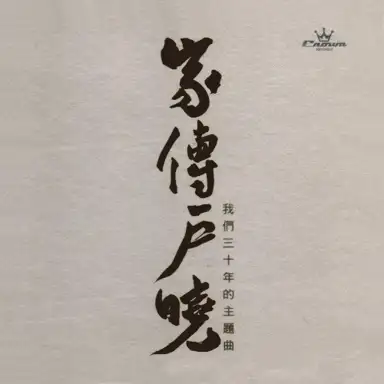 家傳戶曉
我們三十年的主題曲
Crown
RECORDS